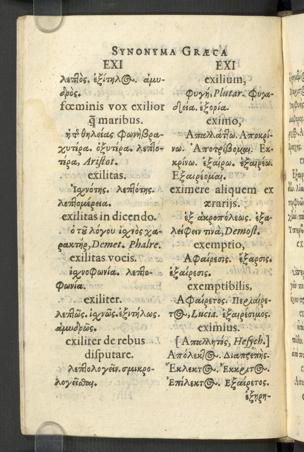 SYNONYMA GRÆCA
EXI
λεπτὸς. ἐξίτηλος. ἀμυ-
δρός.
fœminis vox exilior
q̃ maribus.
ἡ τῆς θηλείας φωνὴ βρα-
χυτέρα. ὀξυτέρα. λεπτο-
τέρα, Aristot.
exilitas.
Ἰσχνότης. λεπτότης.
λεπτομέρεια.
exilitas in dicendo.
ὁ τῶ λόγου ἰσχνὸς χα-
ρακτήρ, Demet. Phalre.
exilitas vocis.
ἰσχνοφωνία. λεπτο-
φωνία.
exiliter.
λεπτῶς. ἰσχνῶς. ἐξιτήλως.
ἀμυδρῶς.
exiliter de rebus
disputare.
λεπτολογεῖν. σμικρο-
λογεῖσθαι.
EXI
exilium,
Φυγὴ, Plutar. Φυγα-
δεία. ἐξορία.
eximo,
Ἀπαλλάττω. Ἀποκρί-
νω. Ἀποτρίβομαι. Ἐκ-
κρίνω. ἐξαίρω. ἐξαιρέω.
Ἐξαιρέομαι.
eximere aliquem ex
ærarijs.
ἐξ ἀκροπόλεως. ἐξα-
λείφειν τινὰ, Demost.
exemptio,
Ἀφαίρεσις. ἔξαρσις.
ἐξαίρεσις.
exemptibilis.
Ἀφαίρετος. Περιαίρε-
τος, Lucia. ἐξαιρέσιμος.
eximius.
[Ἀπαλλητός, Hesych.]
Ἀπόλεκτος. Διαπρεπής.
Ἔκλεκτος. Ἔκκριτος.
Ἐπίλεκτος. Ἐξαίρετος.
ἐξηρη-